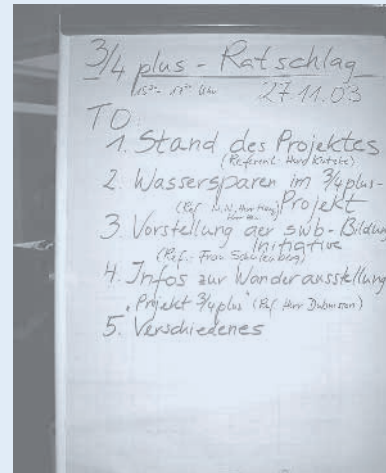 3/4 plus - Ratschlag
15⁰⁰- Uhr 27.11.03
TO:
1. Stand des Projektes
(Referent: Horst
2. Wassersparen im 3/4plus-
(Ref. N.N., Projekt
3. Vorstellung der swb-Bildun
Initiative
(Ref.: Frau Schulenberg)
4. Infos zur Wanderausstellung
"Projekt 3/4plus" (Ref. Herr
5. Verschiedenes